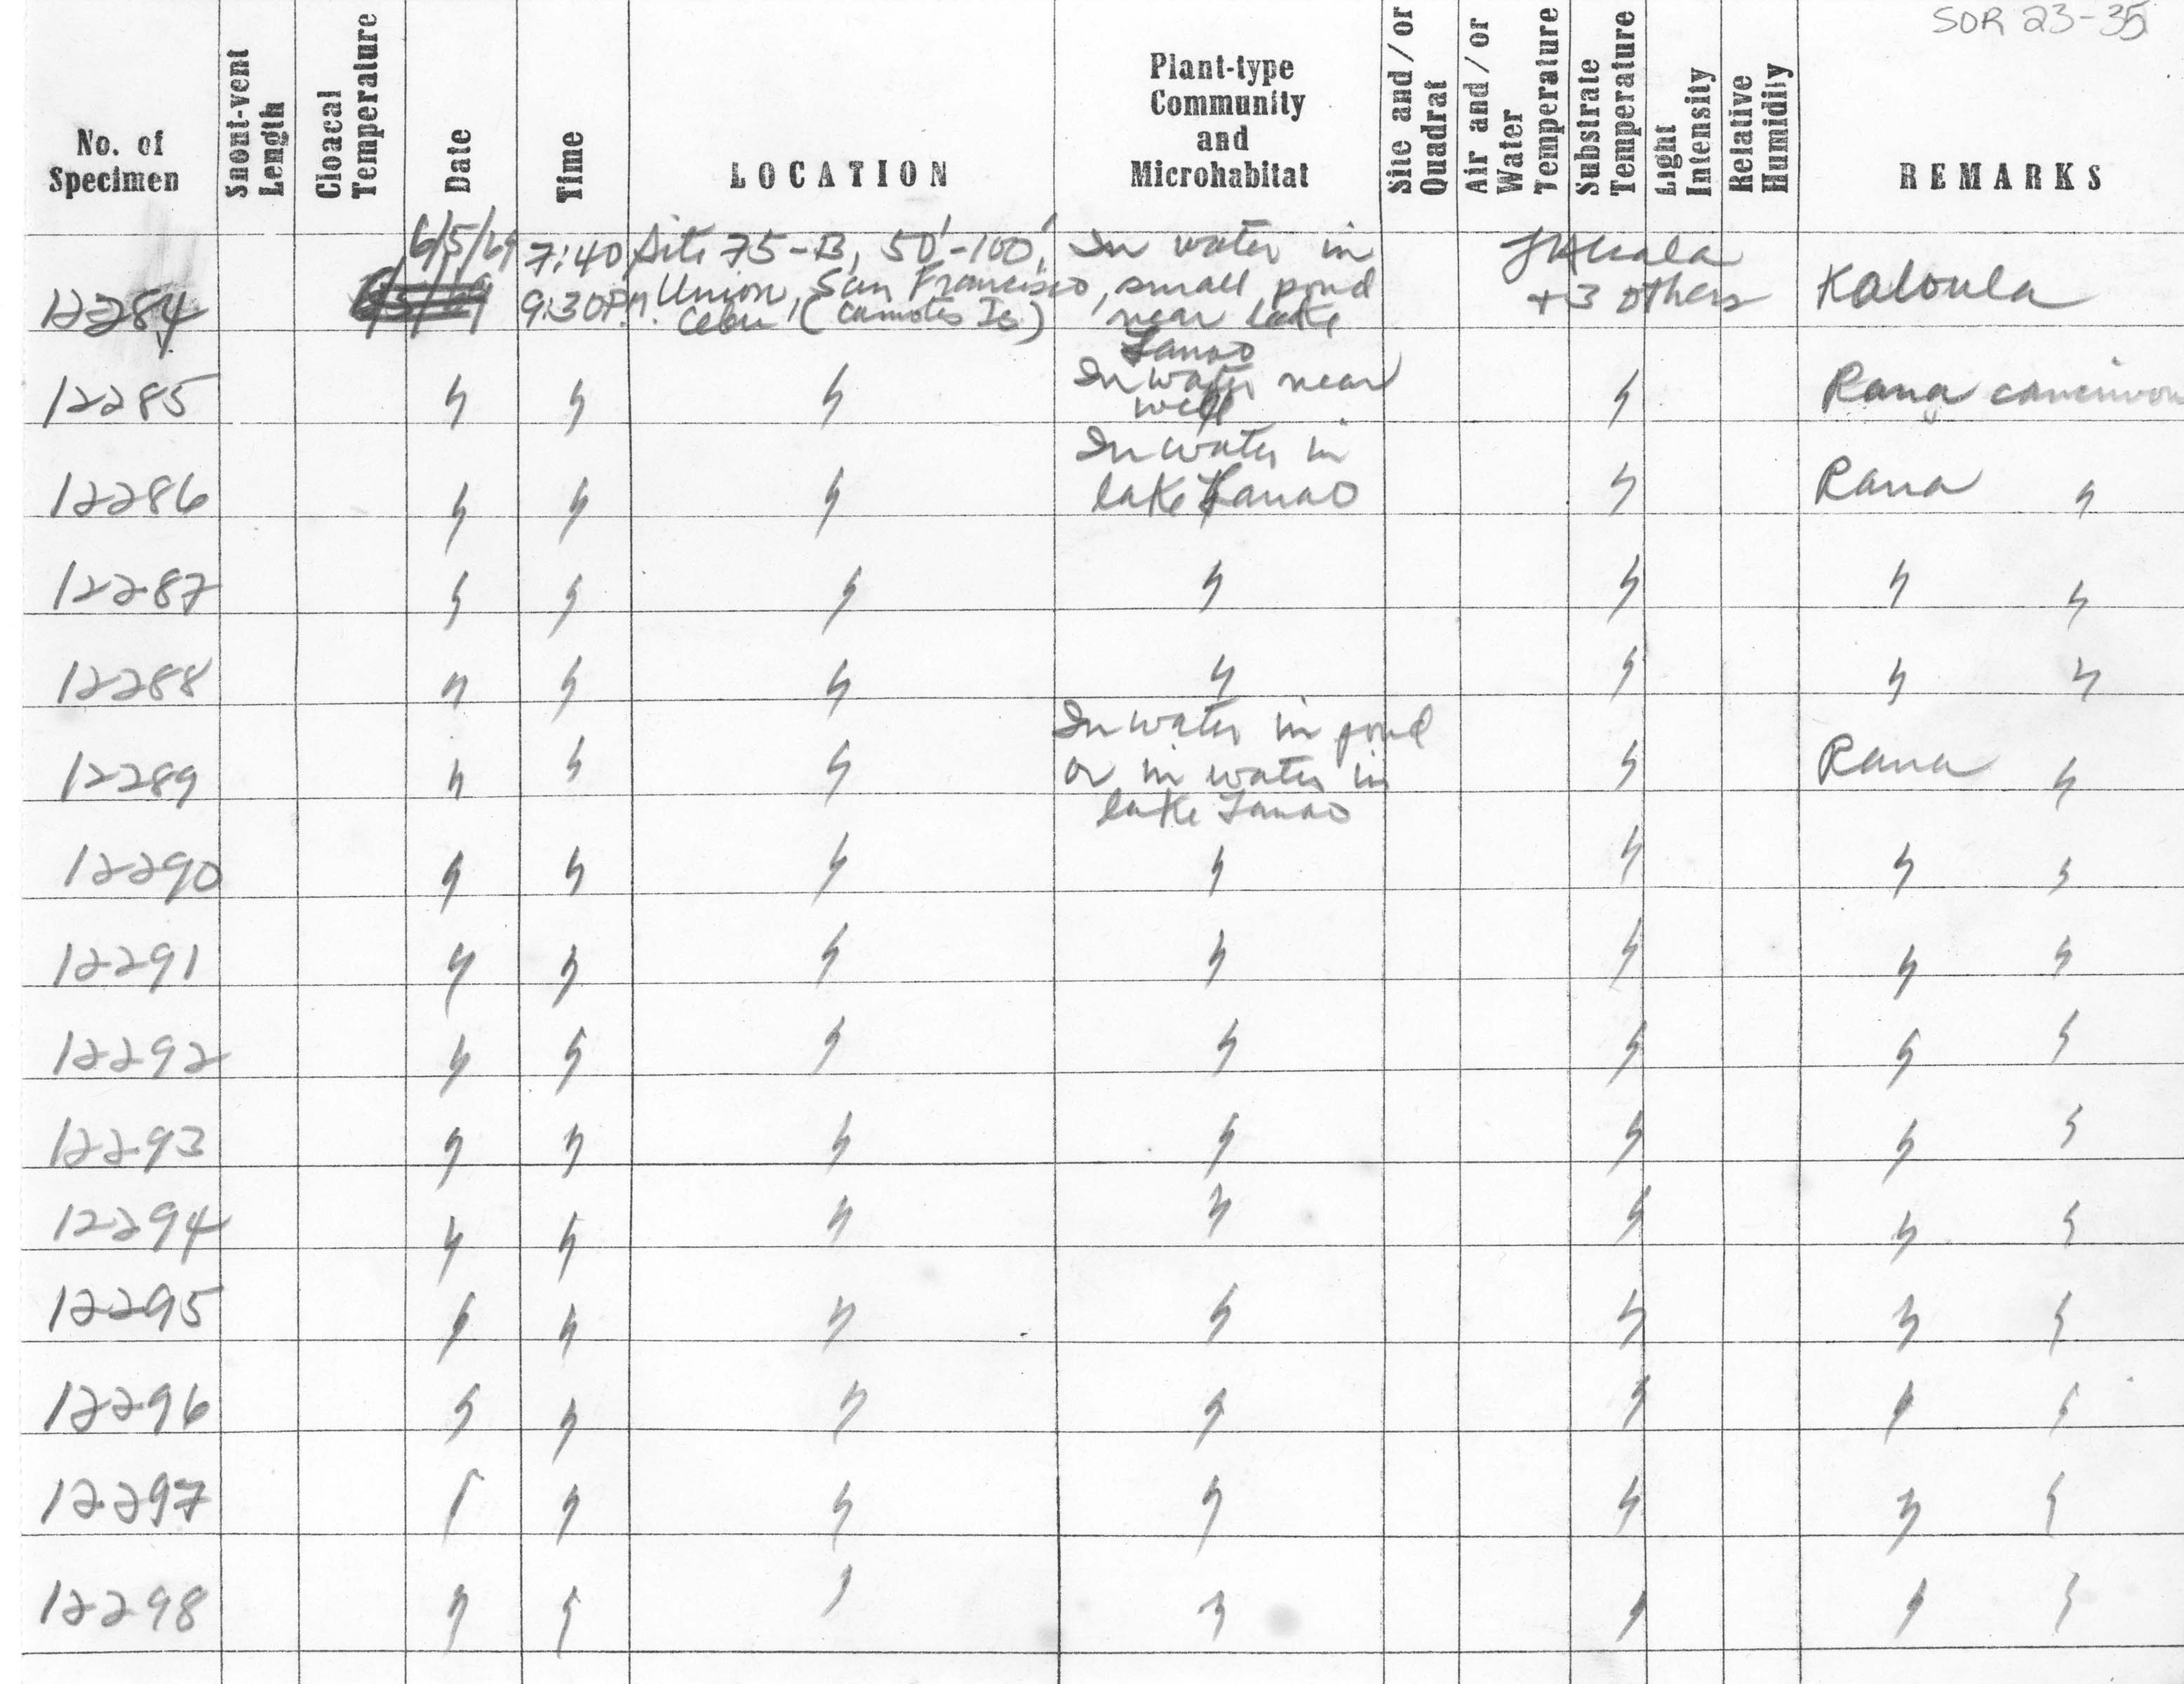 SOR 23-35
No. of Specimen
Snout-vent Length
Cloacal Temperature
Date
Time
LOCATION
Plant-type Community and Microhabitat
Site and/or Quadrat
Air and/or Water Temperature
Substrate Temperature
Light Intensity
Relative Humidity
REMARKS
12284 6/5/69 7:40 9:30 P.M. Site 75-B, 50'-100', Union, San Francisco, Cebu (Camotes Is) In water in small pond near lake Lanao + 3 others Kaloula
12285 " " " In water near well " Rana
12286 " " " In water in lake Lanao " Rana "
12287 " " " " " " "
12288 " " " " " " "
12289 " " " In water in pond or in water in lake Lanao " Rana "
12290 " " " " " " "
12291 " " " " " " "
12292 " " " " " " "
12293 " " " " " " "
12294 " " " " " " "
12295 " " " " " " "
12296 " " " " " " "
12297 " " " " " " "
12298 " " " " " " "